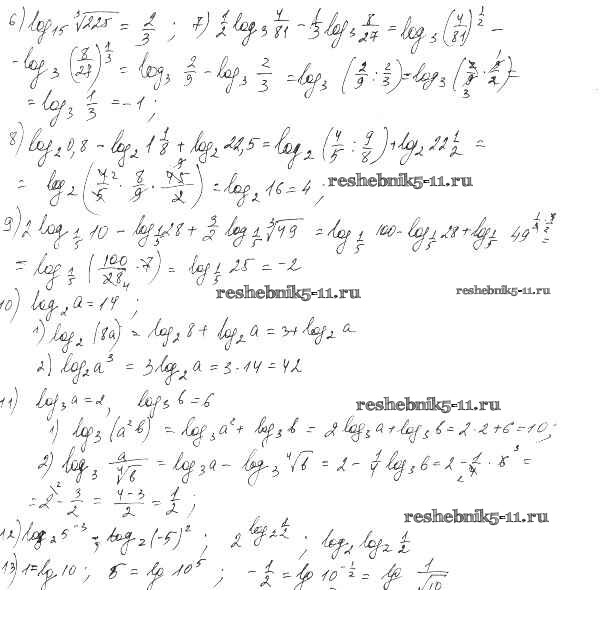 6) log₁₅ ∛225 = 2/3 ; 7) 1/2 log₃ 4/81 − 1/3 log₃ 8/27 = log₃ (4/81)^(1/2) −
− log₃ (8/27)^(1/3) = log₃ 2/9 − log₃ 2/3 = log₃ (2/9 : 2/3) = log₃ (2/9 · 3/2) =
= log₃ 1/3 = −1 ;
8) log₂ 0,8 − log₂ 1 1/8 + log₂ 22,5 = log₂ (4/5 : 9/8) + log₂ 22 1/2 =
= log₂ (4/5 · 8/9 · 45/2) = log₂ 16 = 4 ; reshebnik5-11.ru
9) 2 log_(1/5) 10 − log_(1/5) 28 + 3/2 log_(1/5) ∛49 = log_(1/5) 100 − log_(1/5) 28 + log_(1/5) 49^(1/3 · 3/2) =
= log_(1/5) (100/28 · 7) = log_(1/5) 25 = −2
reshebnik5-11.ru reshebnik5-11.ru
10) log₂ a = 14 ;
1) log₂ (8a) = log₂ 8 + log₂ a = 3 + log₂ a
2) log₂ a³ = 3 log₂ a = 3 · 14 = 42
11) log₃ a = 2, log₃ b = 6 reshebnik5-11.ru
1) log₃ (a² b) = log₃ a² + log₃ b = 2 log₃ a + log₃ b = 2 · 2 + 6 = 10 ;
2) log₃ a/⁴√b = log₃ a − log₃ ⁴√b = 2 − 1/4 log₃ b = 2 − 1/4 · 6 =
= 2 − 3/2 = (4−3)/2 = 1/2 ;
reshebnik5-11.ru
12) log₂ 5⁻³ log₂ (−5)² ; 2^(log₂ 1/2) ; log₂ log₂ 1/2
13) 1 = lg 10 ; 5 = lg 10⁵ ; −1/2 = lg 10^(−1/2) = lg 1/√10